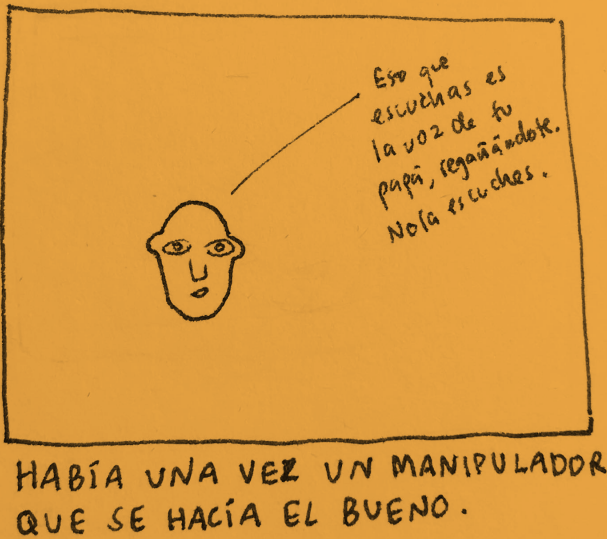 Eso que
escuchas es
la voz de tu
papá, regañándote.
No la escuches.
HABÍA UNA VEZ UN MANIPULADOR
QUE SE HACÍA EL BUENO.